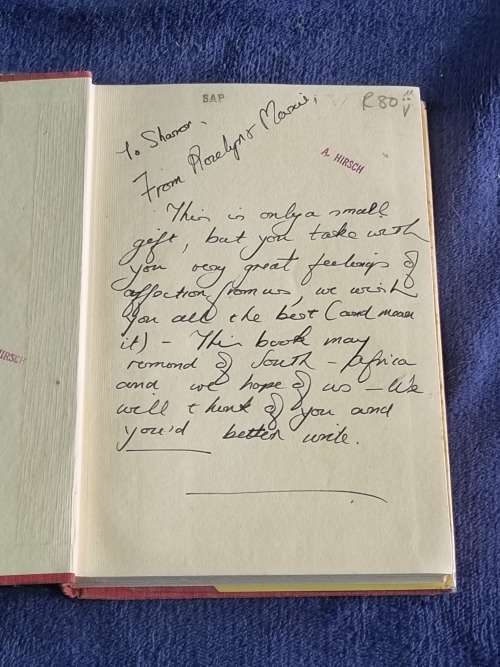 SAP
R80
To Sharon,
From Roselyn & Maxie,
A. HIRSCH
This is only a small
gift, but you take with
you very great feelings of
affection from us, we wish
you all the best (and mean
it) – This book may
remond of South – Africa
and we hope of us – We
will think of you and
you'd better write.
HIRSCH